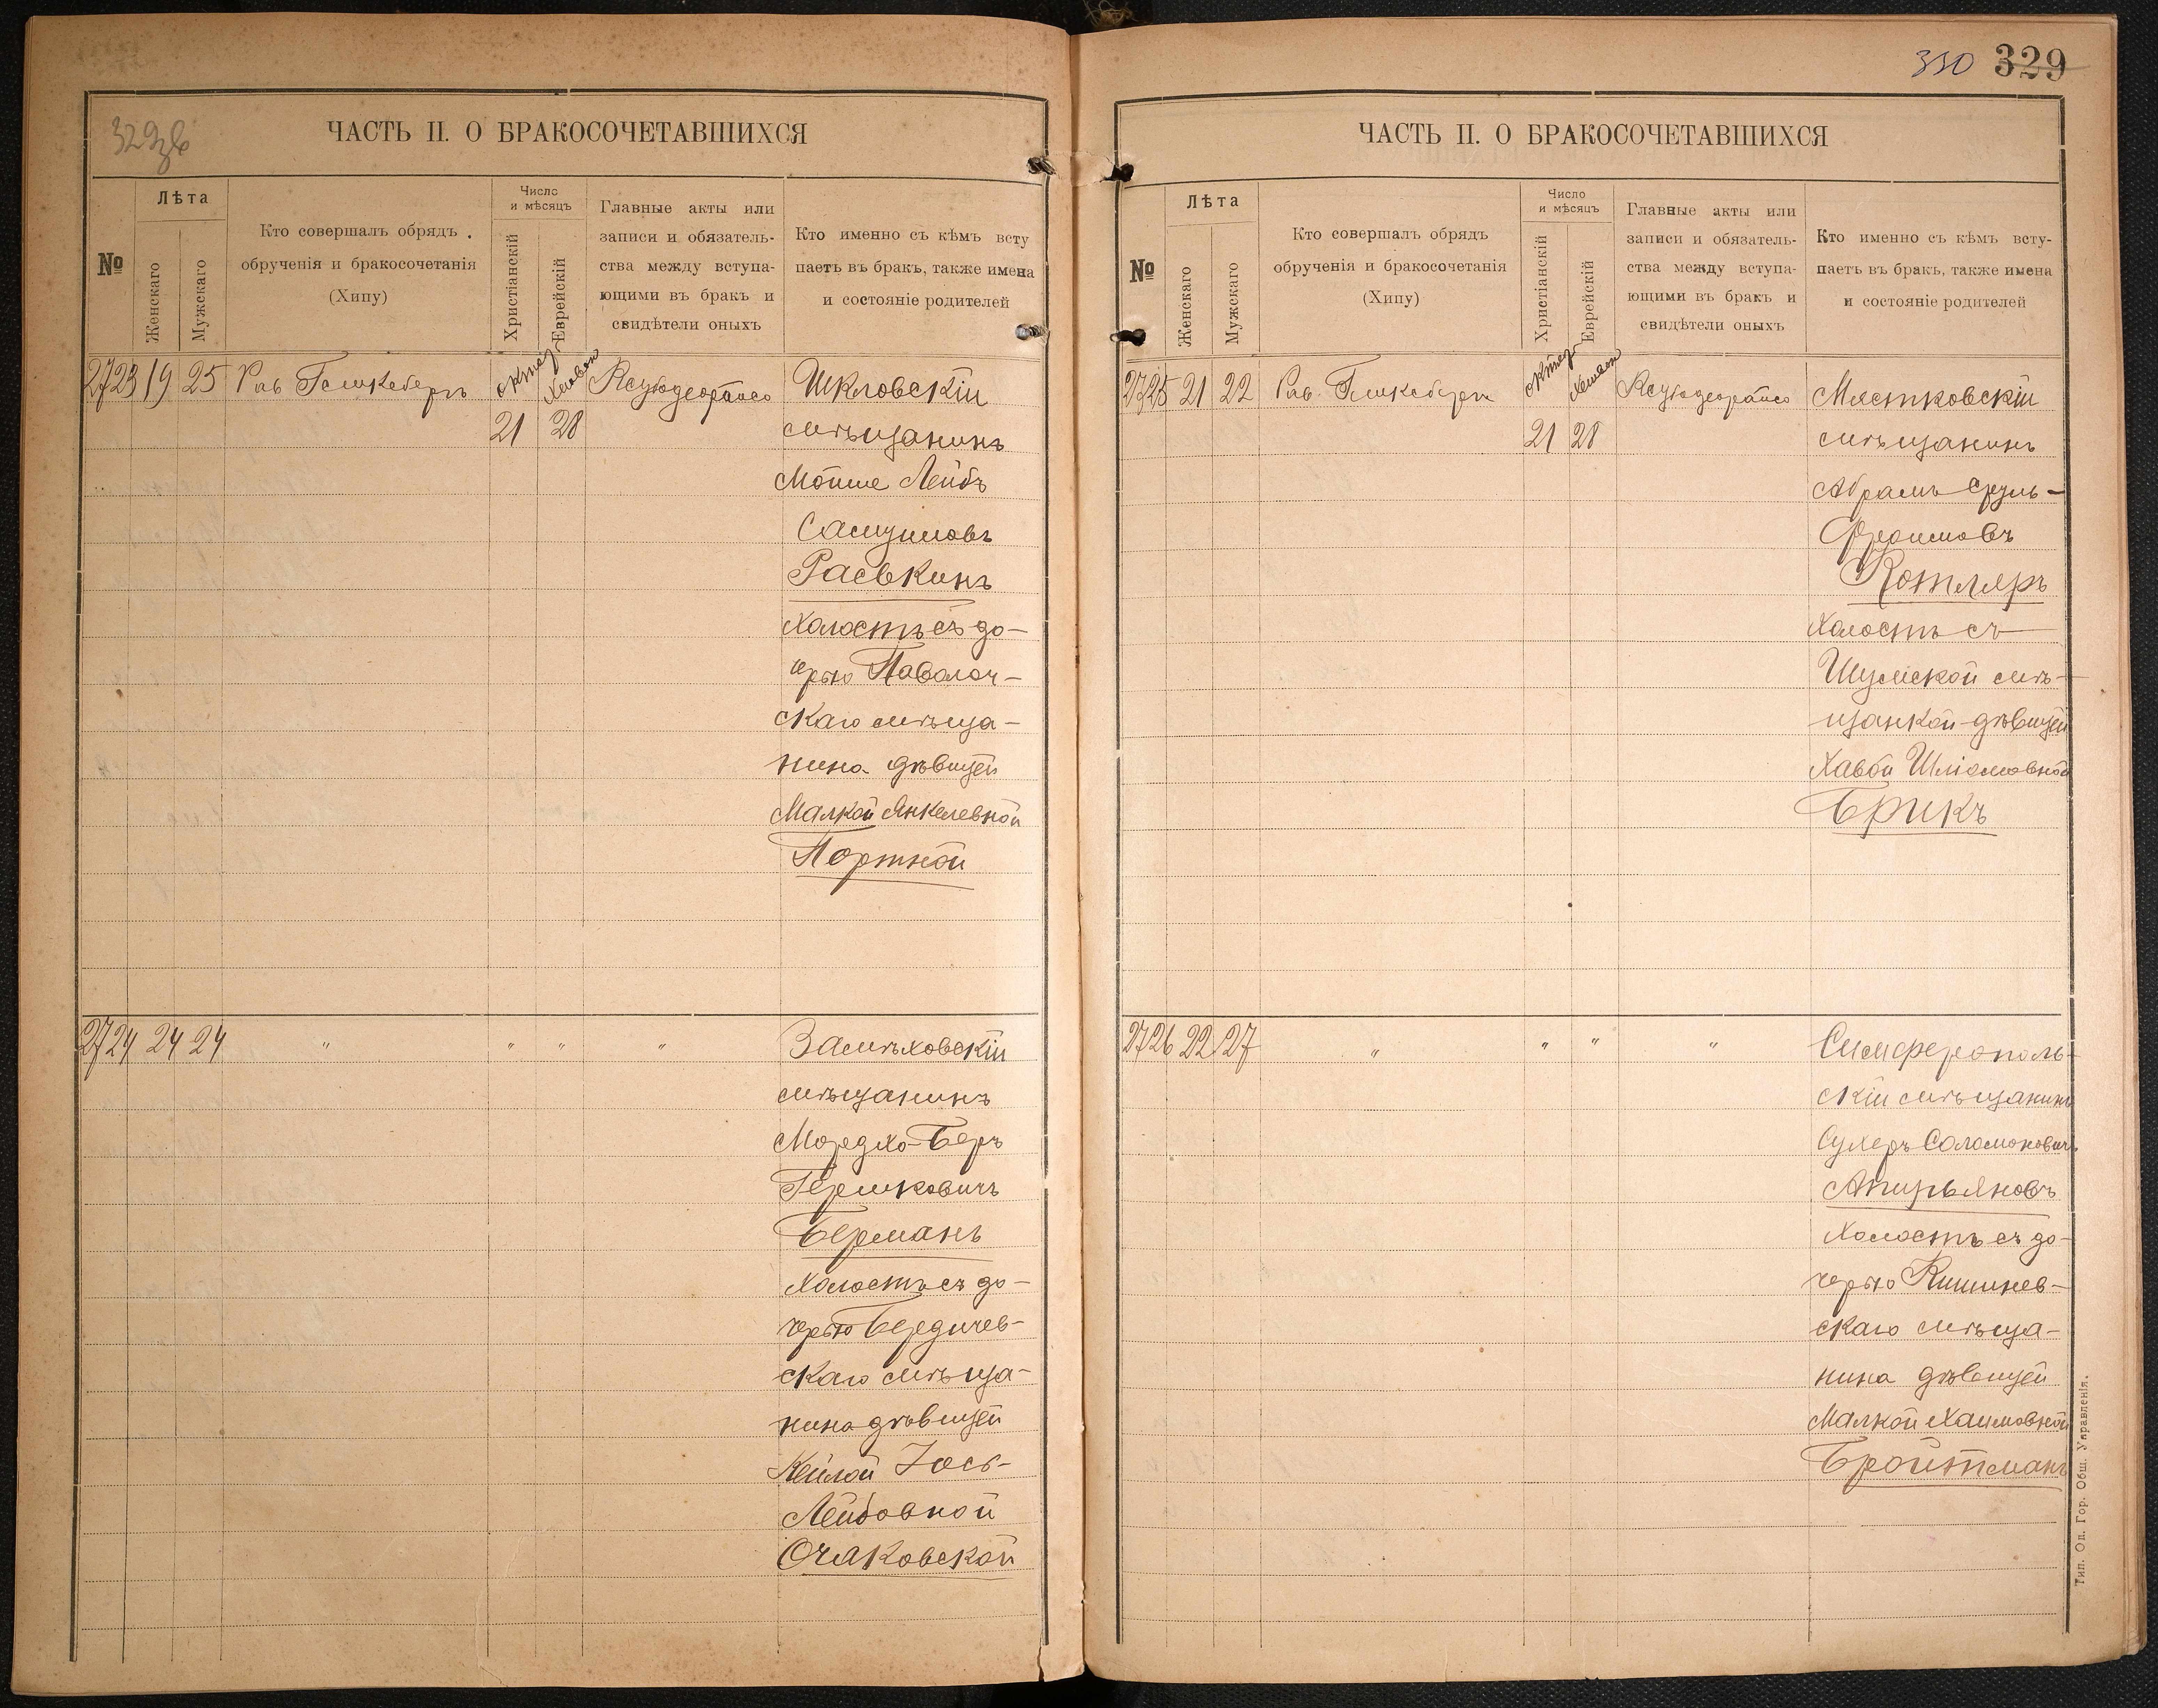 329зв
ЧАСТЬ II. О БРАКОСОЧЕТАВШИХСЯ
№
Лѣта
Женскаго
Мужскаго
Кто совершалъ обрядъ
обрученія и бракосочетанія
(Хипу)
Число
и мѣсяцъ
Христіанскій
Еврейскій
Главные акты или
записи и обязатель-
ства между вступа-
ющими въ бракъ и
свидѣтели оныхъ
Кто именно съ кѣмъ всту
паетъ въ бракъ, также имена
и состояніе родителей
2723 19 25 Рав
21 28
Шкловскій
мѣщанинъ
Мойше Лейбъ
Расвкинъ
Холостъ съ до-
черью Паволоч-
скаго мѣща-
нина дѣвицей
Малкой Янкелевной
Портной
2724 24 24 " " " "
Замѣховскій
мѣщанинъ
Мордхо-Беръ
Гершковичъ
Берманъ
Холостъ съ до-
черью Бердичев-
скаго мѣща-
нина дѣвицей
Кейлой Іось-
Лейбовной
Очаковской
330 329
ЧАСТЬ II. О БРАКОСОЧЕТАВШИХСЯ
№
Лѣта
Женскаго
Мужскаго
Кто совершалъ обрядъ
обрученія и бракосочетанія
(Хипу)
Число
и мѣсяцъ
Христіанскій
Еврейскій
Главные акты или
записи и обязатель-
ства между вступа-
ющими въ бракъ и
свидѣтели оныхъ
Кто именно съ кѣмъ всту-
паетъ въ бракъ, также имена
и состояніе родителей
2725 21 22 Рав
21 28
Мястковскій
мѣщанинъ
Абрамъ Сруль-
Фроимовъ
Котляръ
Холостъ съ
Шумской мѣ-
щанкой дѣвицей
Хавой Шліомовной
Брикъ
2726 22 27 " " " "
Симферополь-
скій мѣщанинъ
Сухеръ Соломоновичъ
Апирьяновъ
Холостъ съ до-
черью Кишинев-
скаго мѣща-
нина дѣвицей
Малкой Хаимовной
Бройтманъ
Тип. Од. Гор. Общ. Управленія.